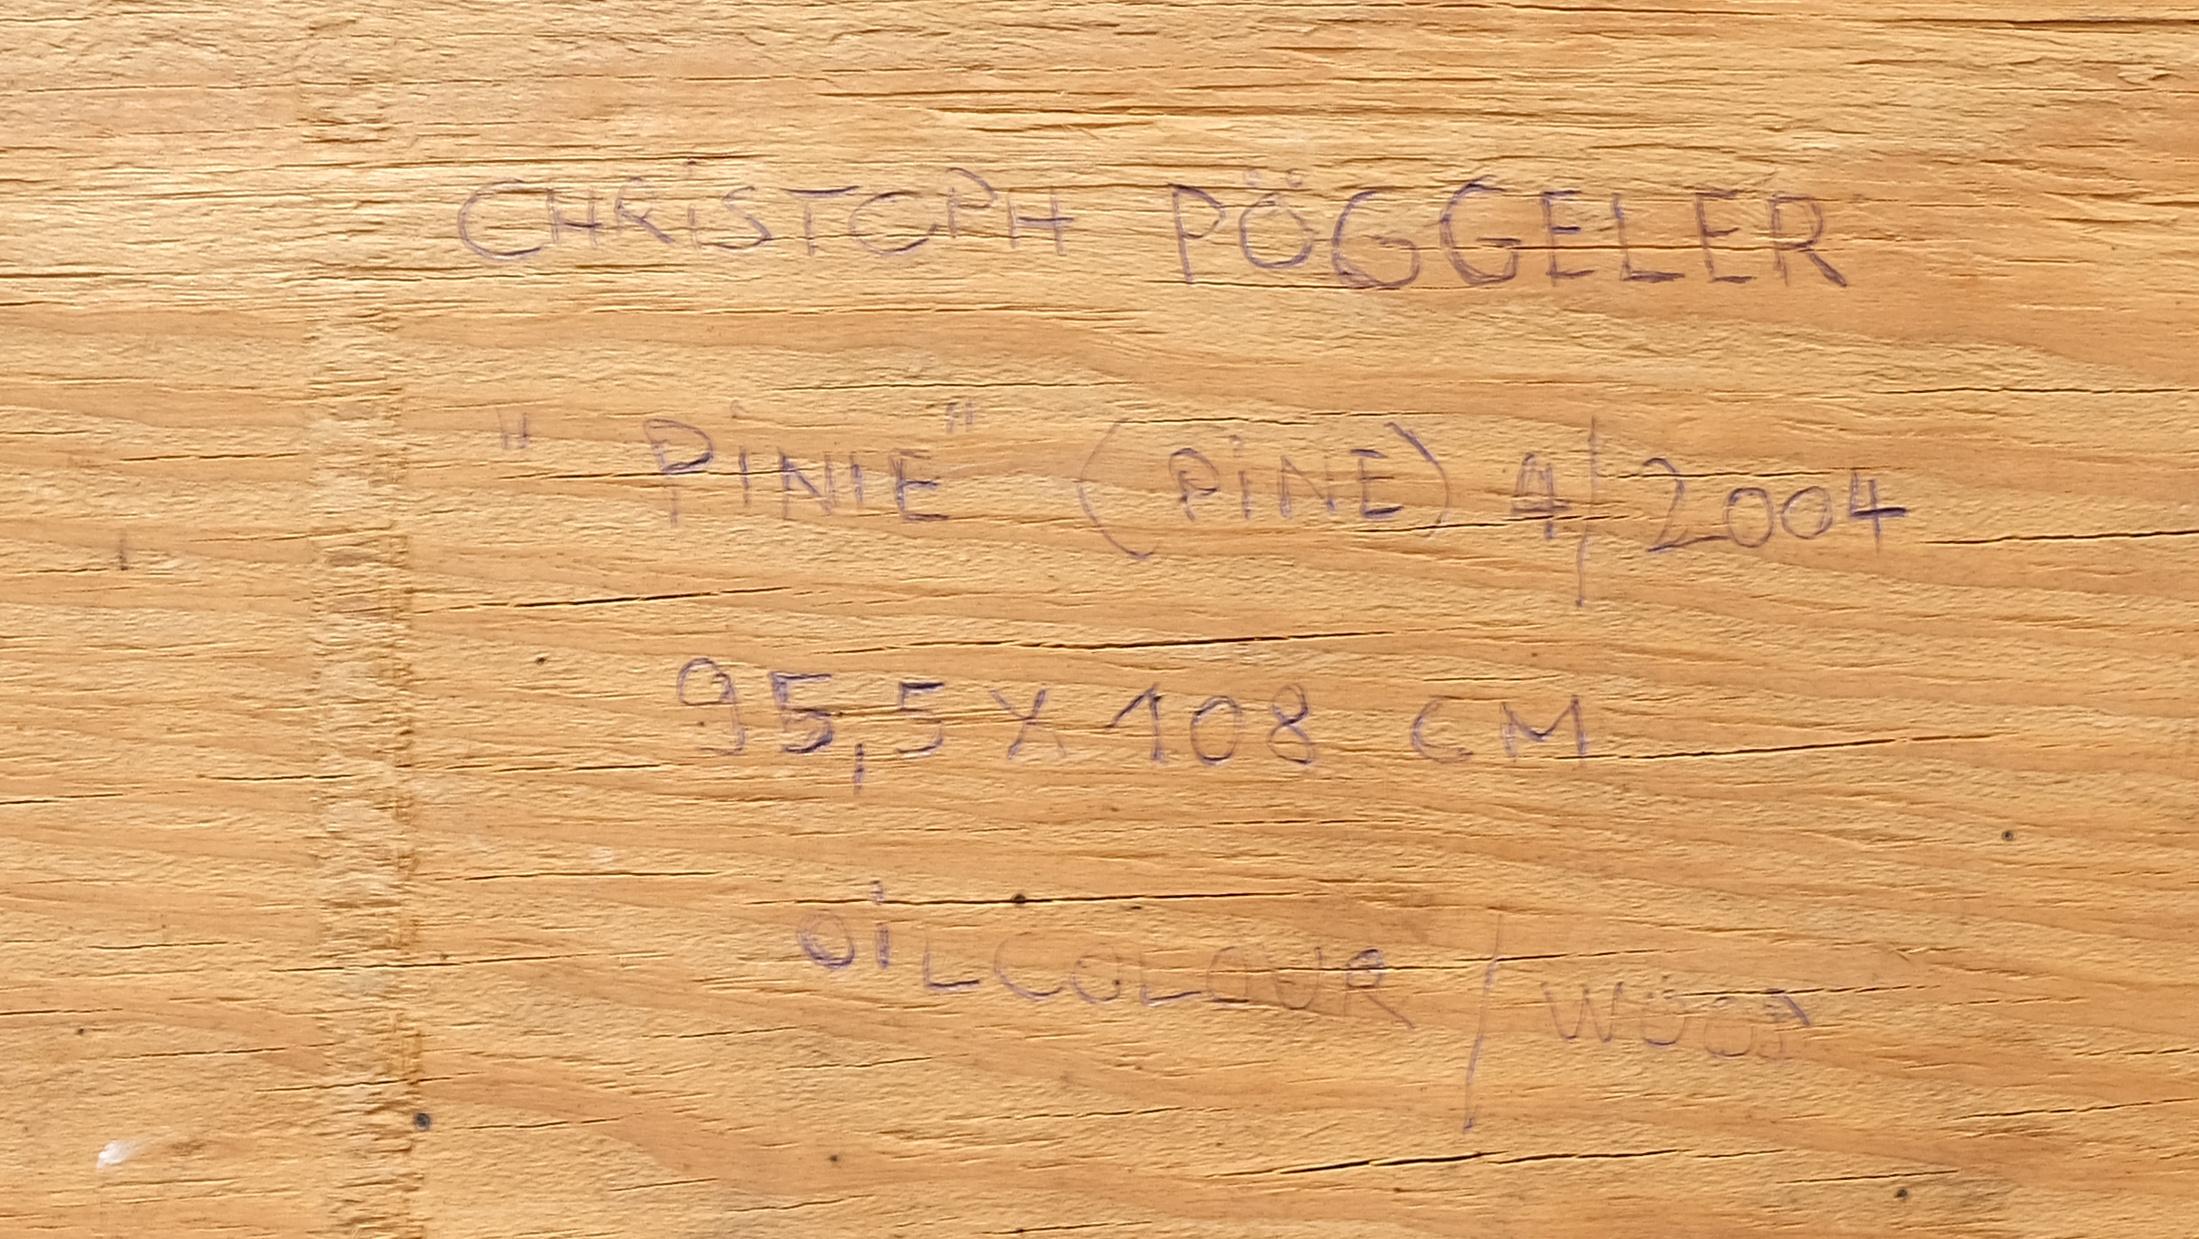 CHRiSTOPH PÖGGELER
"PiNIE" (PiNE) 4/2004
95,5 X 108 CM
OiLCOLOUR / WOOD